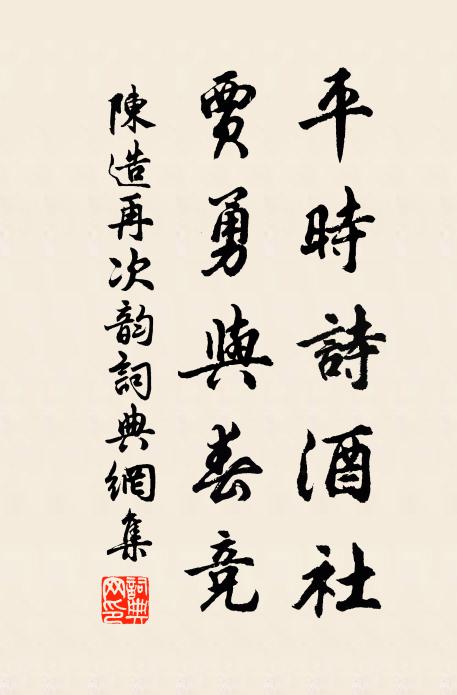 平時詩酒社
賈勇與春競
陳造再次韵詞典網集
詞典網印